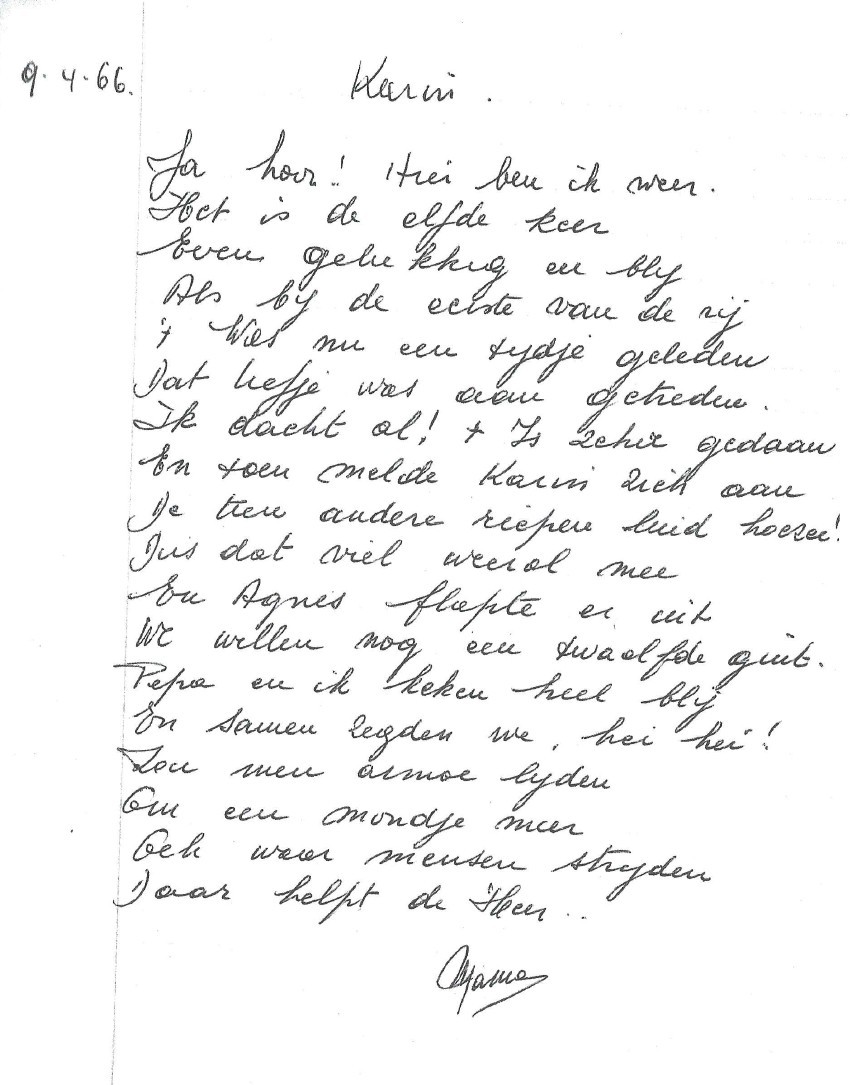 9.4.66.
Karin.
Ja hoor! Hier ben ik weer.
Het is de elfde keer
Even gelukkig en bly
Als by de eerste van de rij
't Was nu een tydje geleden
Dat liefje was aan getreden.
Ik dacht al! 't Is zeker gedaan
En toen melde Karin zich aan
De tien andere riepen luid hoezee!
Dus dat viel weeral mee
En Agnes flapte er uit
We willen nog een twaalfde guit.
Papa en ik keken heel blij
En samen zegden we, hei hei!
Zou men armoe lyden
Om een mondje meer
Och waar mensen stryden
Daar helpt de Heer..
Mama